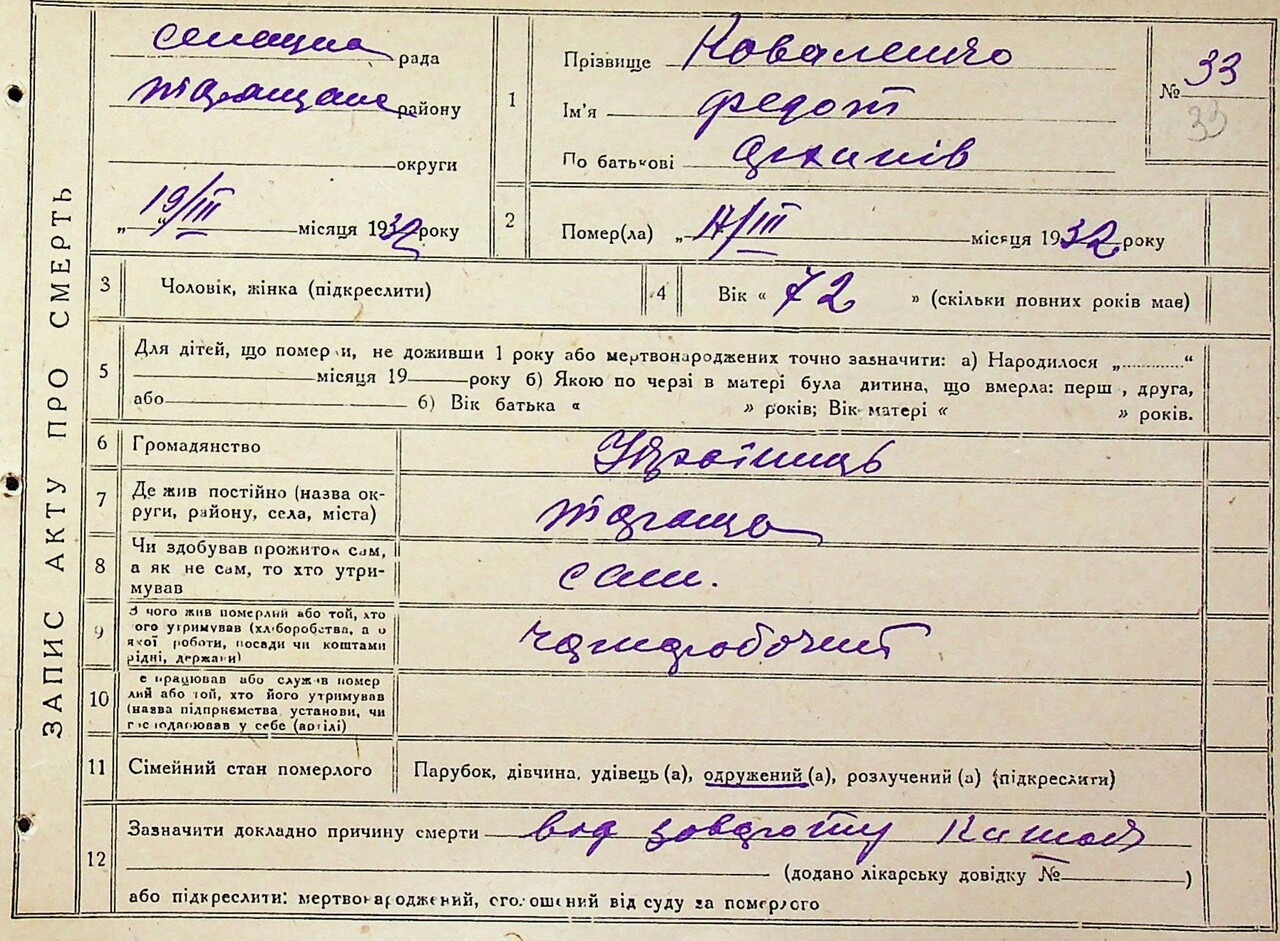 ЗАПИС АКТУ ПРО СМЕРТЬ
селищна рада
району
округи
„19/III“ місяця 1932 року
1
Прізвище Коваленко
Ім'я Федот
По батькові Архипів
№ 33
33
2
Помер(ла) „17/III місяця 1932 року
3 Чоловік, жінка (підкреслити)
4 Вік « 72 » (скільки повних років має)
5
Для дітей, що померли, не доживши 1 року або мертвонароджених точно зазначити: а) Народилося „..........“
місяця 19 року б) Якою по черзі в матері була дитина, що вмерла: перш , друга,
або 6) Вік батька « » років; Вік матері « » років.
6 Громадянство Українець
7
Де жив постійно (назва ок-
руги, району, села, міста)
8
Чи здобував прожиток сам,
а як не сам, то хто утри-
мував
сам.
9
З чого жив померлий або той, хто
ого утримував (хліборобства, а о
якої роботи, посади чи коштами
рідні, держави)
чорноробочий
10
е працював або служив помер
лий або той, хто його утримував
(назва підприємства установи, чи
господарював у себе (артілі)
11 Сімейний стан померлого Парубок, дівчина, удівець (а), одружений (а), розлучений (а) (підкреслити)
12
Зазначити докладно причину смерти від завороту кишок
(додано лікарську довідку № )
або підкреслити: мертвонароджений, оголошений від суду за померлого